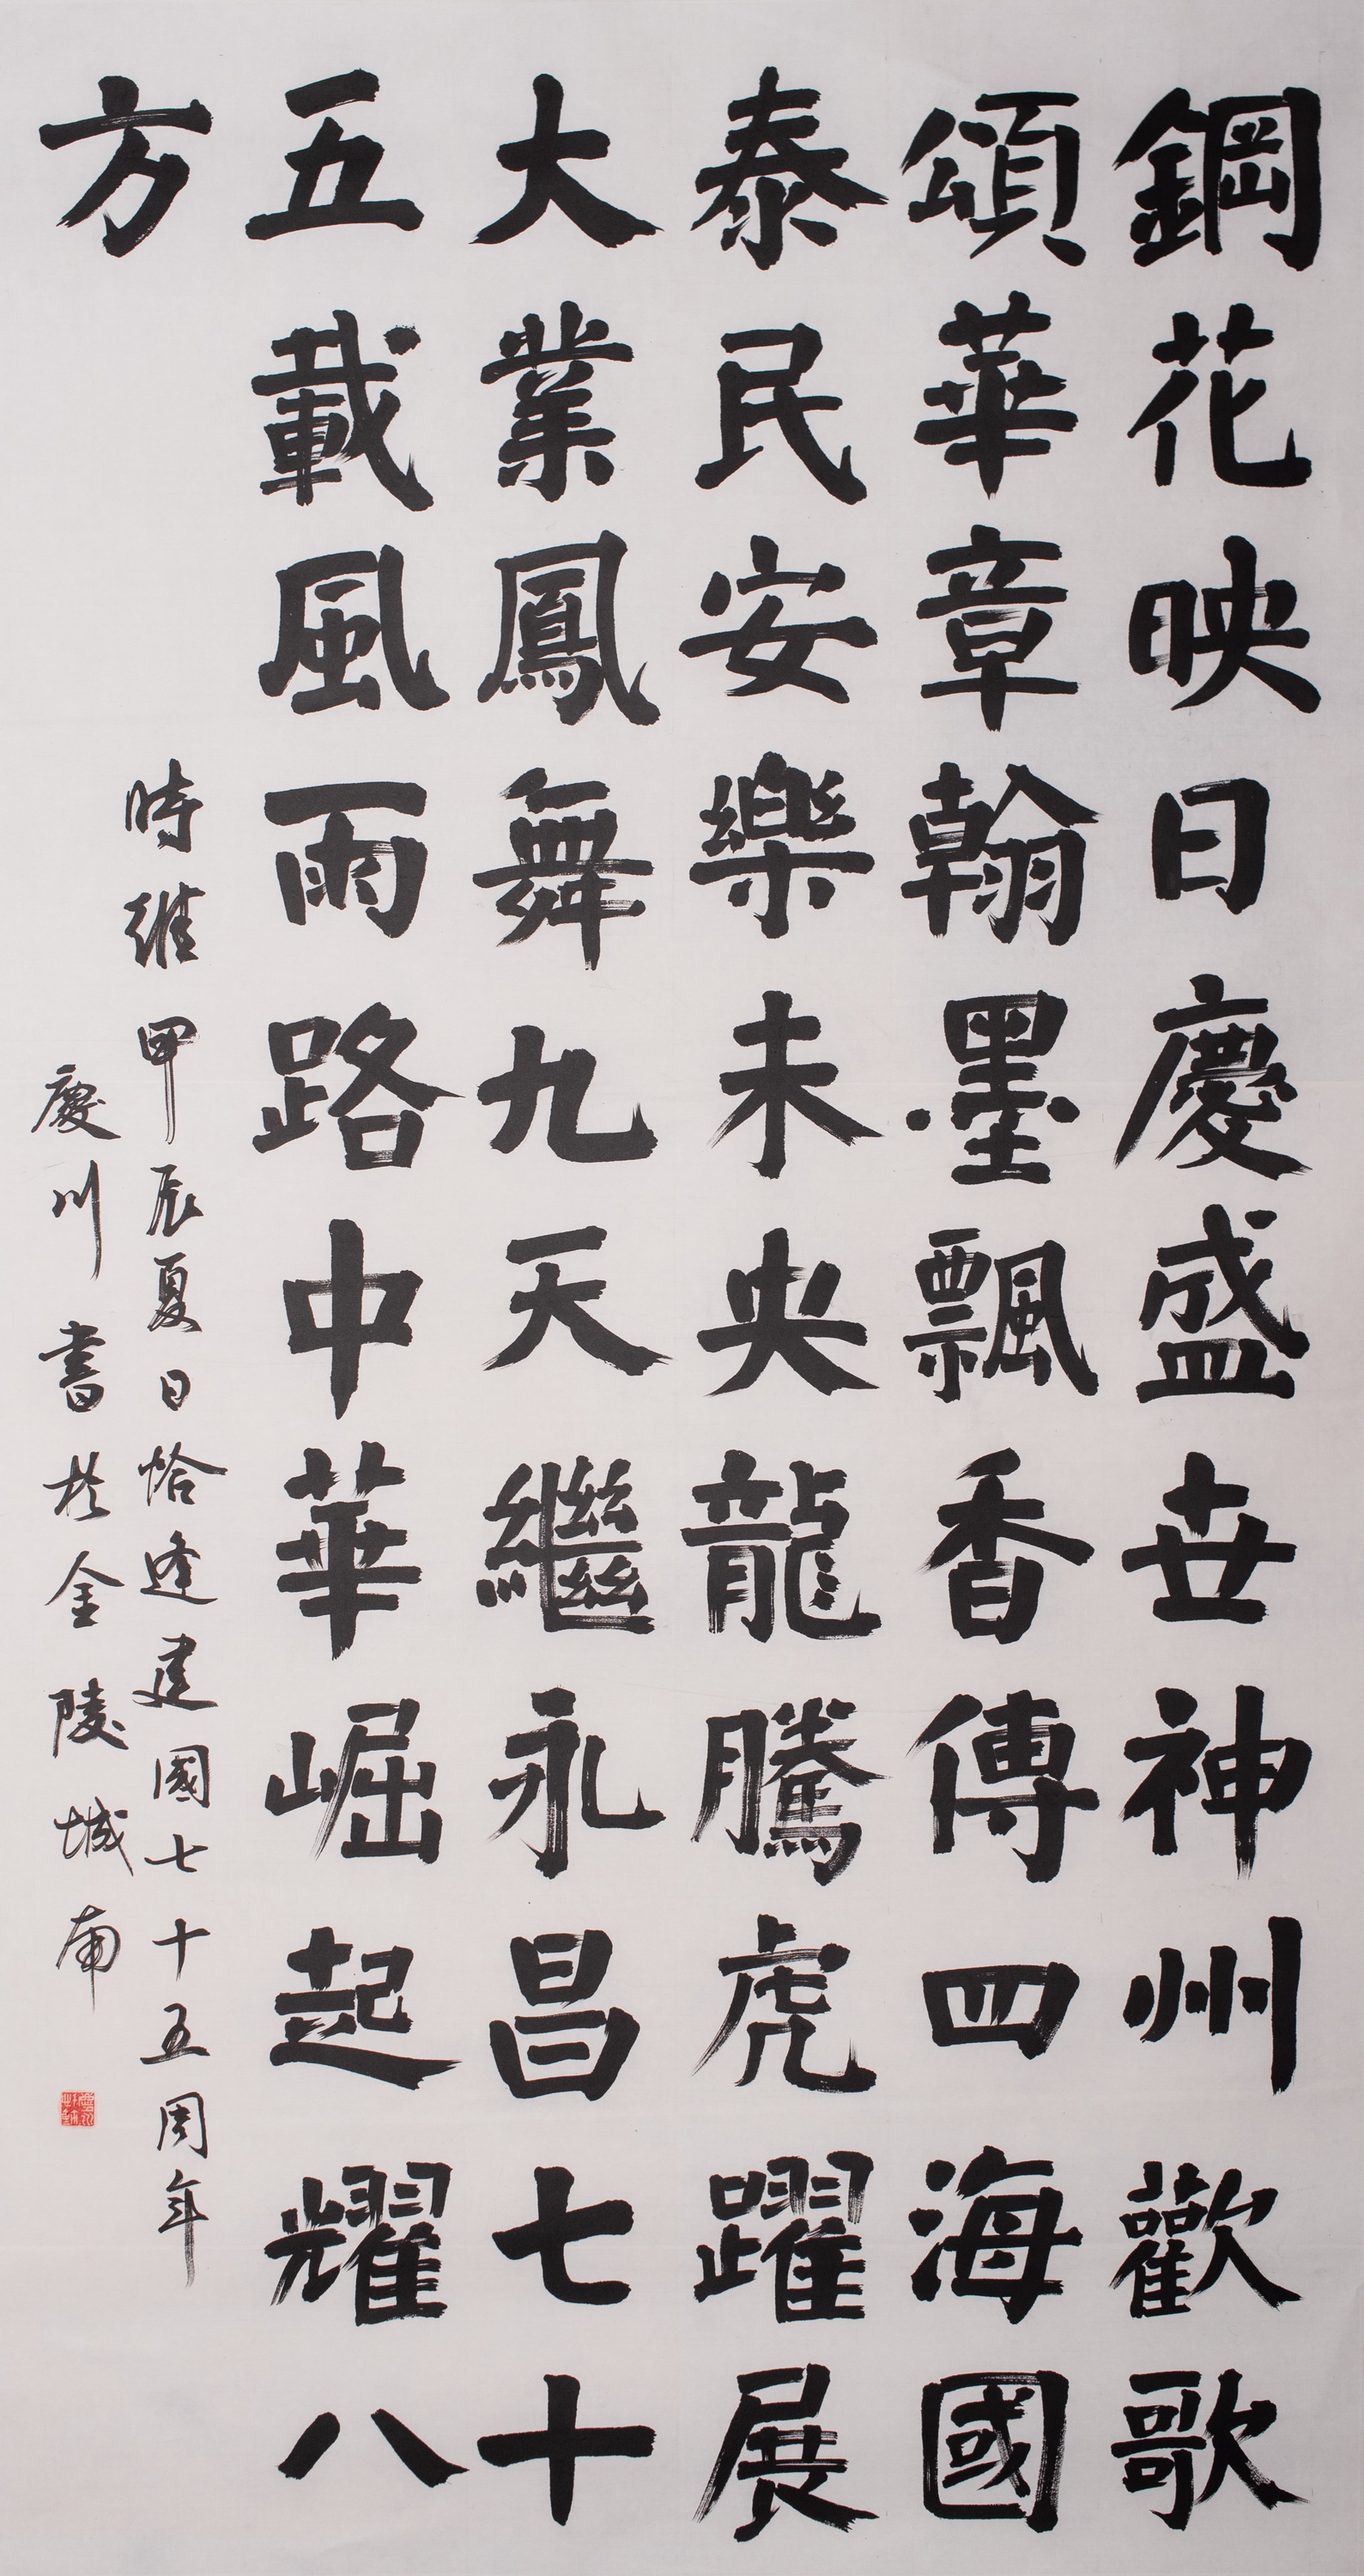 鋼花映日慶盛世神州歡歌
頌華章翰墨飄香傳四海國
泰民安樂未央龍騰虎躍展
大業鳳舞九天繼永昌七十
五載風雨路中華崛起耀八
方
時維甲辰夏日恰逢建國七十五周年
慶川書於金陵城南